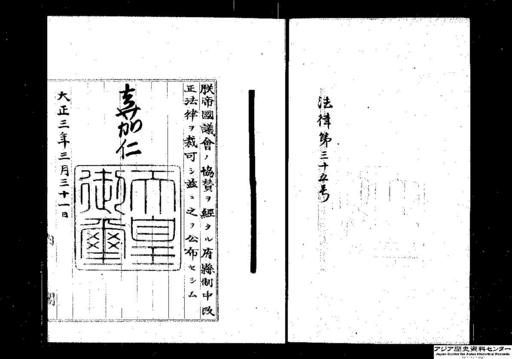 法律第三十五号
朕帝國議會ノ協賛ヲ經タル府縣制中改
正法律ヲ裁可シ茲ニ之ヲ公布セシム
嘉仁
天皇
御璽
大正三年三月三十一日
アジア歴史資料センター
Japan Center for Asian Historical Records